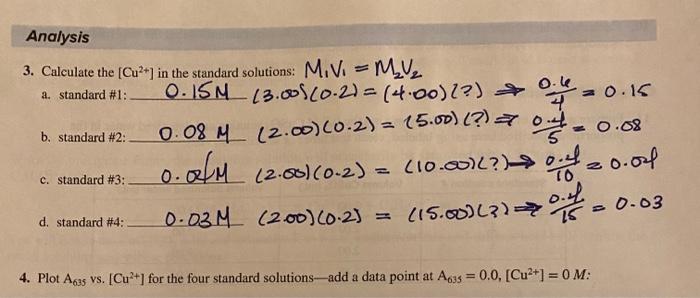 Analysis
3. Calculate the [Cu²⁺] in the standard solutions: M₁V₁ = M₂V₂
a. standard #1: 0.15M (3.00)(0.2) = (4.00)(?) ⇒ 0.6/4 = 0.15
b. standard #2: 0.08 M (2.00)(0.2) = (5.00)(?) ⇒ 0.4/5 = 0.08
c. standard #3: 0.04M (2.00)(0.2) = (10.00)(?) ⇒ 0.4/10 = 0.04
d. standard #4: 0.03M (2.00)(0.2) = (15.00)(?) ⇒ 0.4/15 = 0.03
4. Plot A₆₃₅ vs. [Cu²⁺] for the four standard solutions—add a data point at A₆₃₅ = 0.0, [Cu²⁺] = 0 M: